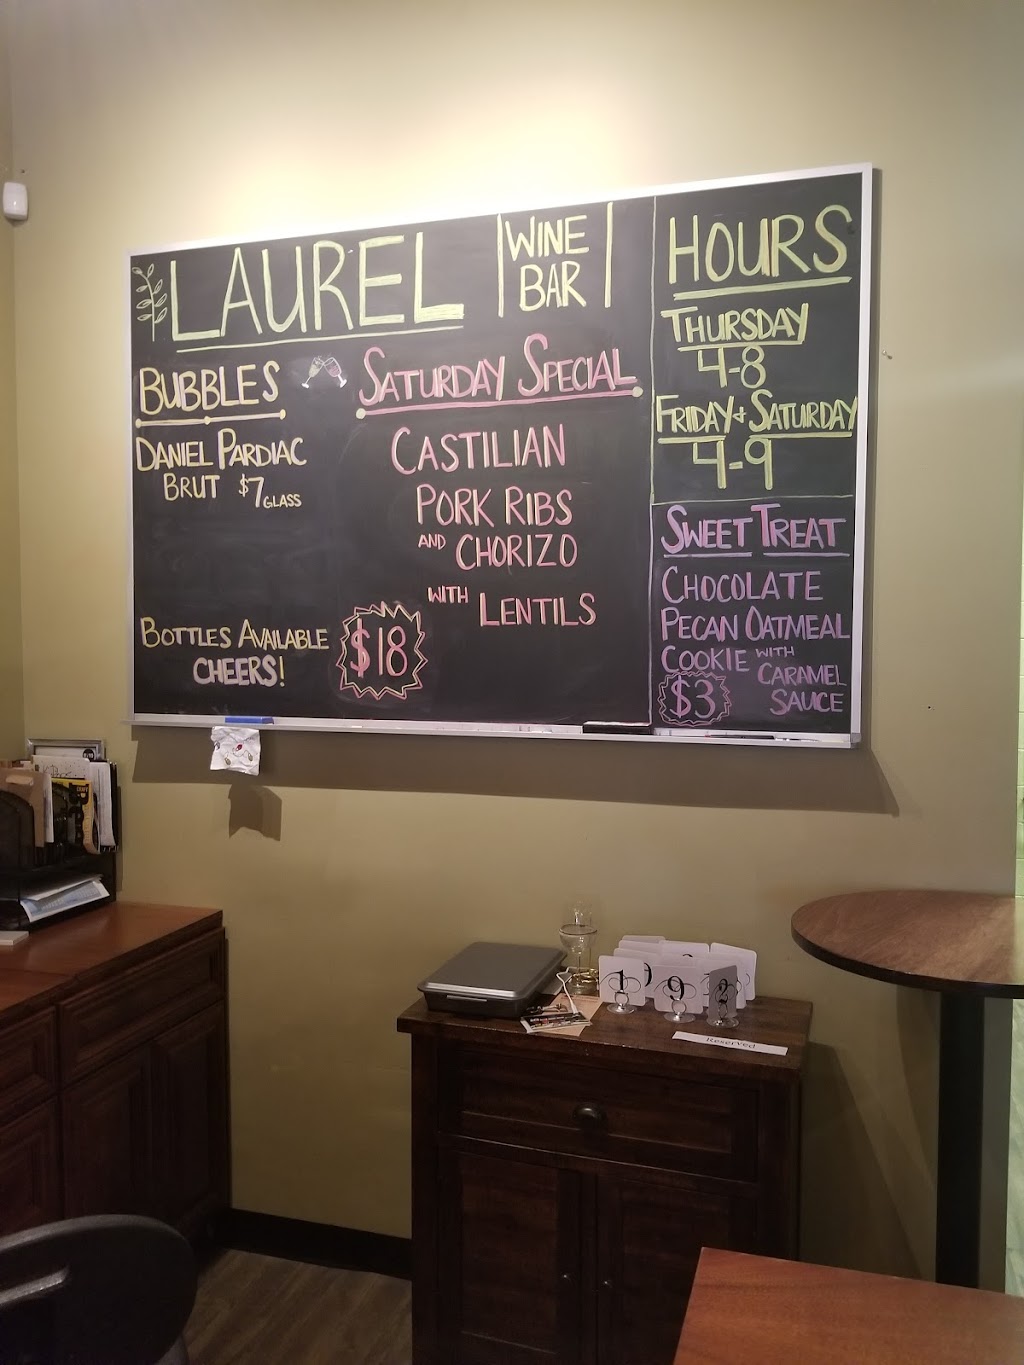 LAUREL
WINE
BAR
BUBBLES
DANIEL PARDIAC
BRUT $7 GLASS
BOTTLES AVAILABLE
CHEERS!
SATURDAY SPECIAL
CASTILIAN
PORK RIBS
AND CHORIZO
WITH LENTILS
$18
HOURS
THURSDAY
4-8
FRIDAY + SATURDAY
4-9
SWEET TREAT
CHOCOLATE
PECAN OATMEAL
COOKIE WITH
CARAMEL
SAUCE
$3
1
9
2
Reserved